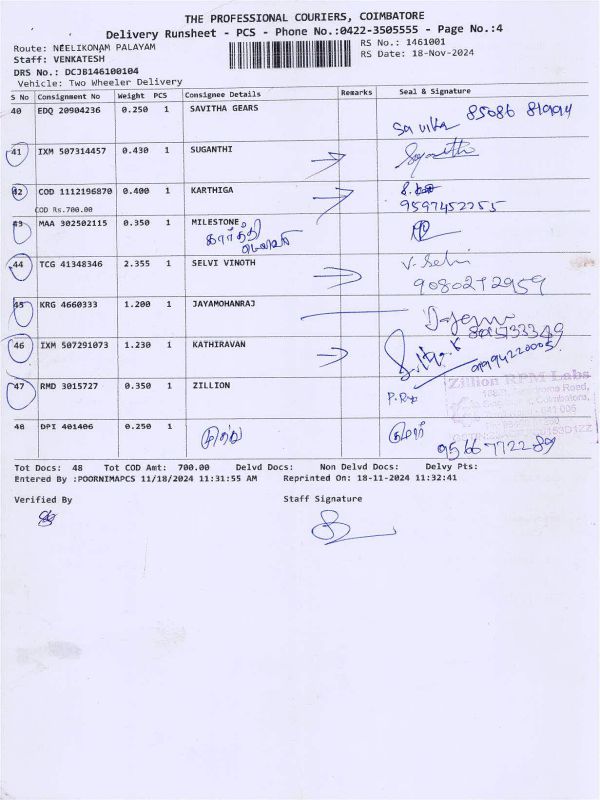 THE PROFESSIONAL COURIERS, COIMBATORE
Delivery Runsheet - PCS - Phone No.:0422-3505555 - Page No.:4
Route: NEELIKONAM PALAYAM
RS No.: 1461001
Staff: VENKATESH
RS Date: 18-Nov-2024
DRS No.: DCJB146100104
Vehicle: Two Wheeler Delivery
S No Consignment No Weight PCS Consignee Details Remarks Seal & Signature
40 EDQ 20904236 0.250 1 SAVITHA GEARS
85086 81994
41 IXM 507314457 0.430 1 SUGANTHI
42 COD 1112196870 0.400 1 KARTHIGA
COD Rs.700.00
9597452255
43 MAA 302502115 0.350 1 MILESTONE
கார்த்தி
44 TCG 41348346 2.355 1 SELVI VINOTH V. Selvi
9080272959
45 KRG 4660333 1.200 1 JAYAMOHANRAJ
46 IXM 507291073 1.230 1 KATHIRAVAN
9994220005
47 RMD 3015727 0.350 1 ZILLION
Zillion RPM Labs
48 DPI 401406 0.250 1
குமார்
9566772289
Tot Docs: 48 Tot COD Amt: 700.00 Delvd Docs: Non Delvd Docs: Delvy Pts:
Entered By :POORNIMAPCS 11/18/2024 11:31:55 AM Reprinted On: 18-11-2024 11:32:41
Verified By Staff Signature